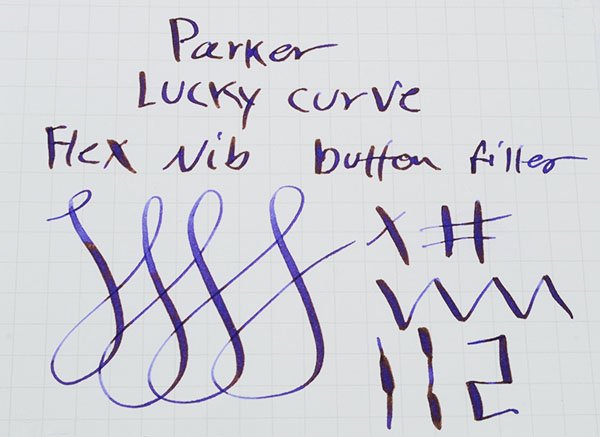 Parker
Lucky curve
Flex Nib button filler